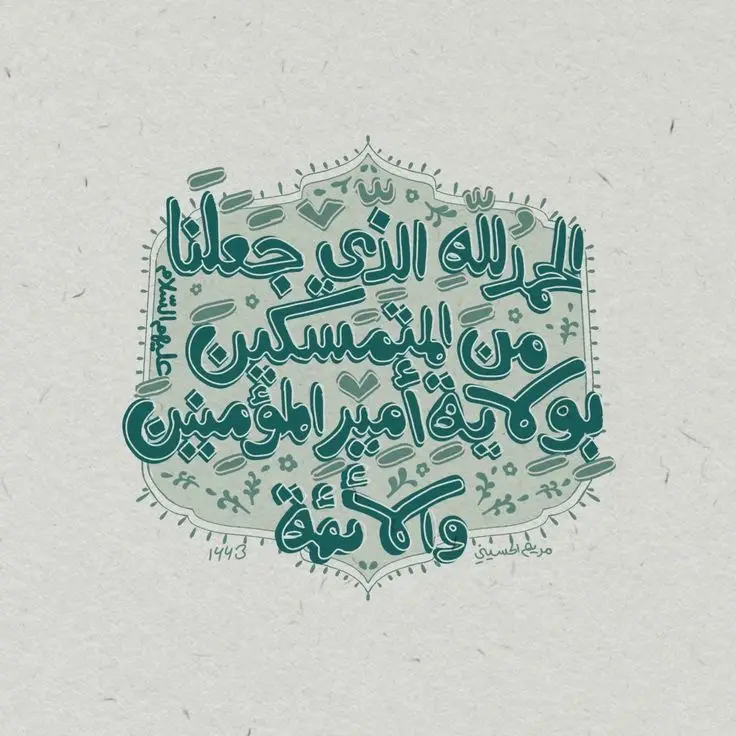 الحمدُ للّهِ الّذي جَعَلَنا
منَ المتمَسكينَ
بِولايةِ أميرِ المؤمِنينَ
والأئمة
عليهم السّلام
مريم الحسيني
١٤٤٣